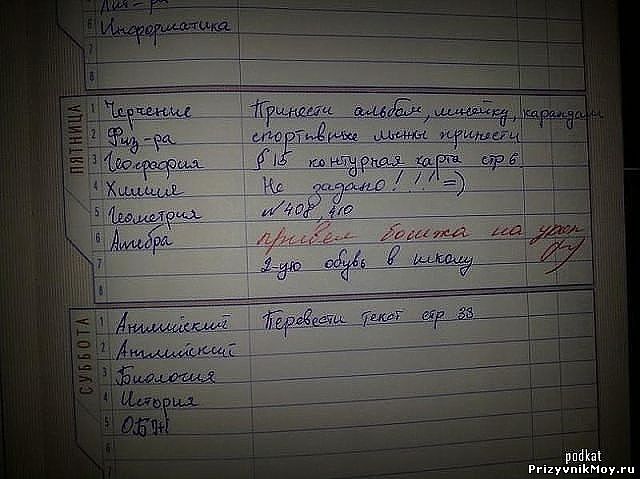 Лит-ра
6 Информатика
7
8
ПЯТНИЦА
1 Черчение Принести альбом, линейку, карандаш
2 Физ-ра спортивные лыжы принести
3 География § 15 контурная карта стр 6
4 Химия Не задано!!! =)
5 Геометрия №408, 410
6 Алгебра привёл бомжа на урок
7 2-ую обувь в школу
8
СУББОТА
1 Английский Перевести текст стр 33
2 Английский
3 Биология
4 История
5 ОБЖ
6
7
podkat
PrizyvnikMoy.ru